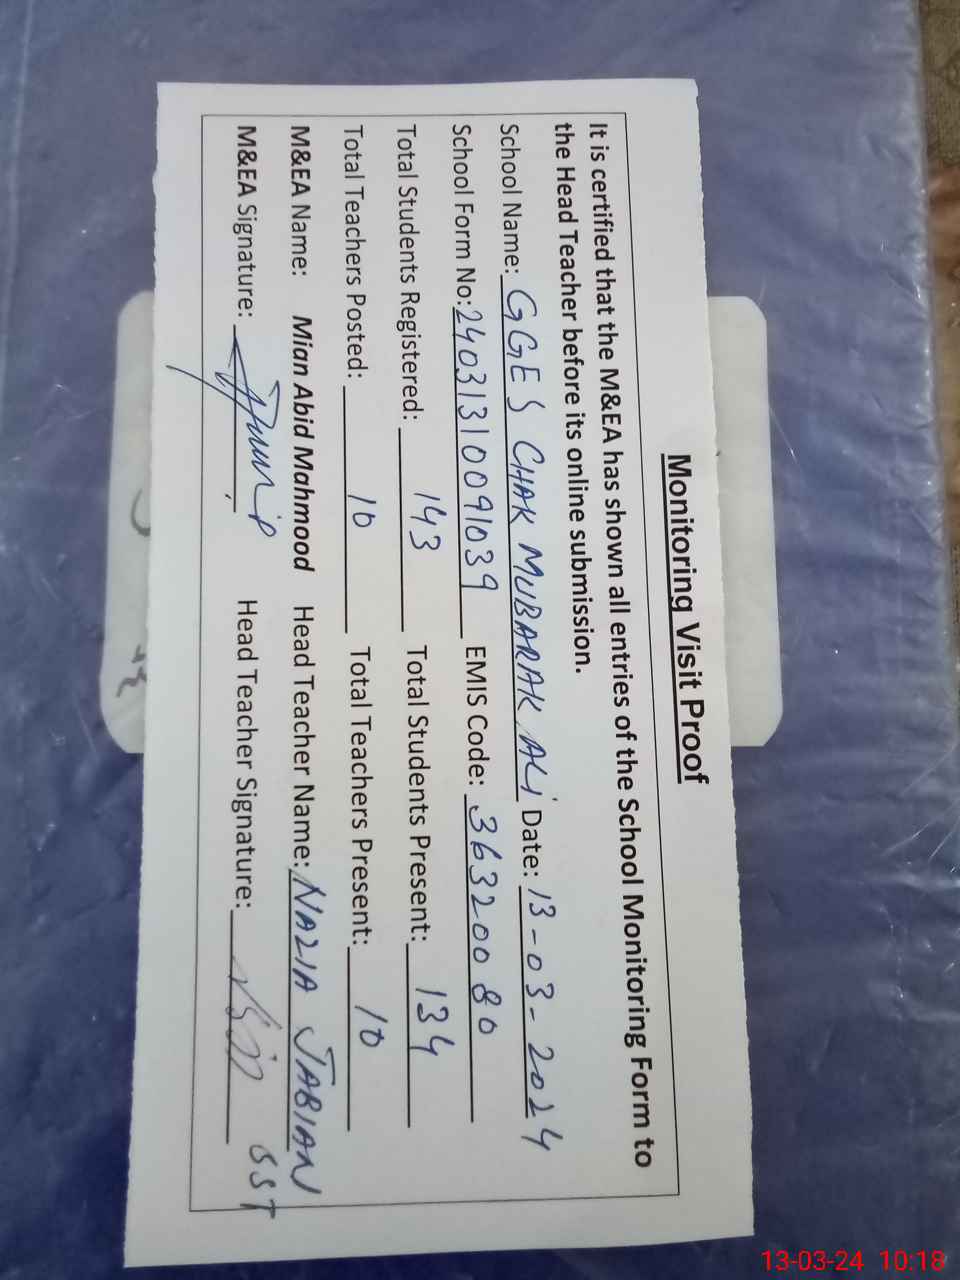 Monitoring Visit Proof
It is certified that the M&EA has shown all entries of the School Monitoring Form to
the Head Teacher before its online submission.
School Name: GGES CHAK MUBARAK ALI Date: 13-03-2024
School Form No: 24031310091039 EMIS Code: 36320080
Total Students Registered: 143 Total Students Present: 134
Total Teachers Posted: 10 Total Teachers Present: 10
M&EA Name: Mian Abid Mahmood Head Teacher Name: NAZIA JABIAN
M&EA Signature: Head Teacher Signature: SST
13-03-24 10:18